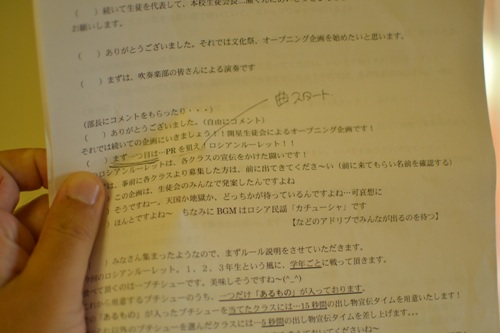 (　　)続いて生徒を代表して、本校生徒会長
お願いします。
(　　)ありがとうございました。それでは文化祭、オープニング企画を始めたいと思います。
(　　)まずは、吹奏楽部の皆さんによる演奏です
曲スタート
(部長にコメントをもらったり・・・)
(　　)ありがとうございました。(自由にコメント)
それでは続いての企画にいきましょう!開星生徒会によるオープニング企画です!
(　　)まず一つ目は…PRを狙え!ロシアンルーレット!!
ロシアンルーレットは、各クラスの宣伝をかけた闘いです!
は、事前に各クラスより募集した方は、前に出てきてくださ~い(前に来てもらい名前を確認する)
この企画は、生徒会のみんなで発案したんですよね
)そうですね~。天国か地獄か、どっちかが待っているんですよね…可哀想に
)ほんとですよね~　ちなみにBGMはロシア民謡「カチューシャ」です
【などのアドリブでみんなが出るのを待つ】
)みなさん集まったようなので、まずルール説明をさせていただきます。
ロシアンルーレット。1、2、3年生という風に、学年ごとに戦って頂きます。
のは…プチシューです。美味しそうですね~(^_^)
用意するプチシューのうち、一つだけ「あるもの」が入っております。
「あるもの」が入ったプチシューを当てたクラスには…15秒間の出し物宣伝タイムを用意いたします!
のプチシューを選んだクラスには…5秒間の出し物宣伝タイムを差し上げます。…